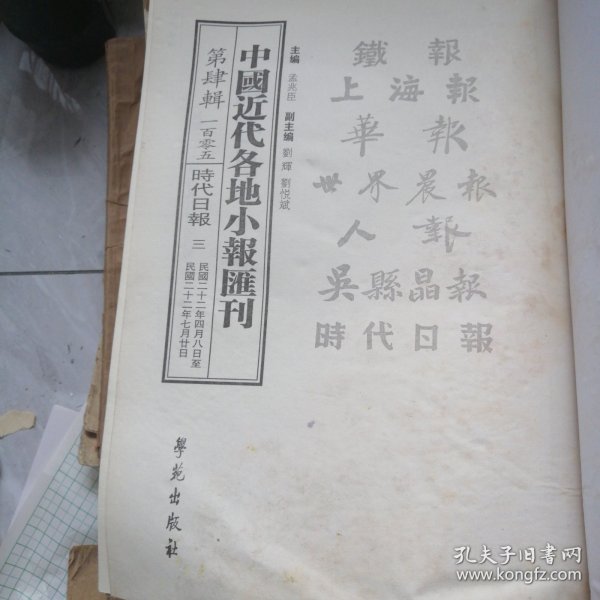 鐵報
上海報
華報
世界晨報
人報
吳縣晶報
時代日報
主編 孟兆臣 副主編 劉輝 劉悅斌
中國近代各地小報匯刊
第肆輯 一百零五 時代日報 三 民國二十二年四月八日至
民國二十二年七月廿日
學苑出版社
孔夫子旧书网
www.kongfz.com